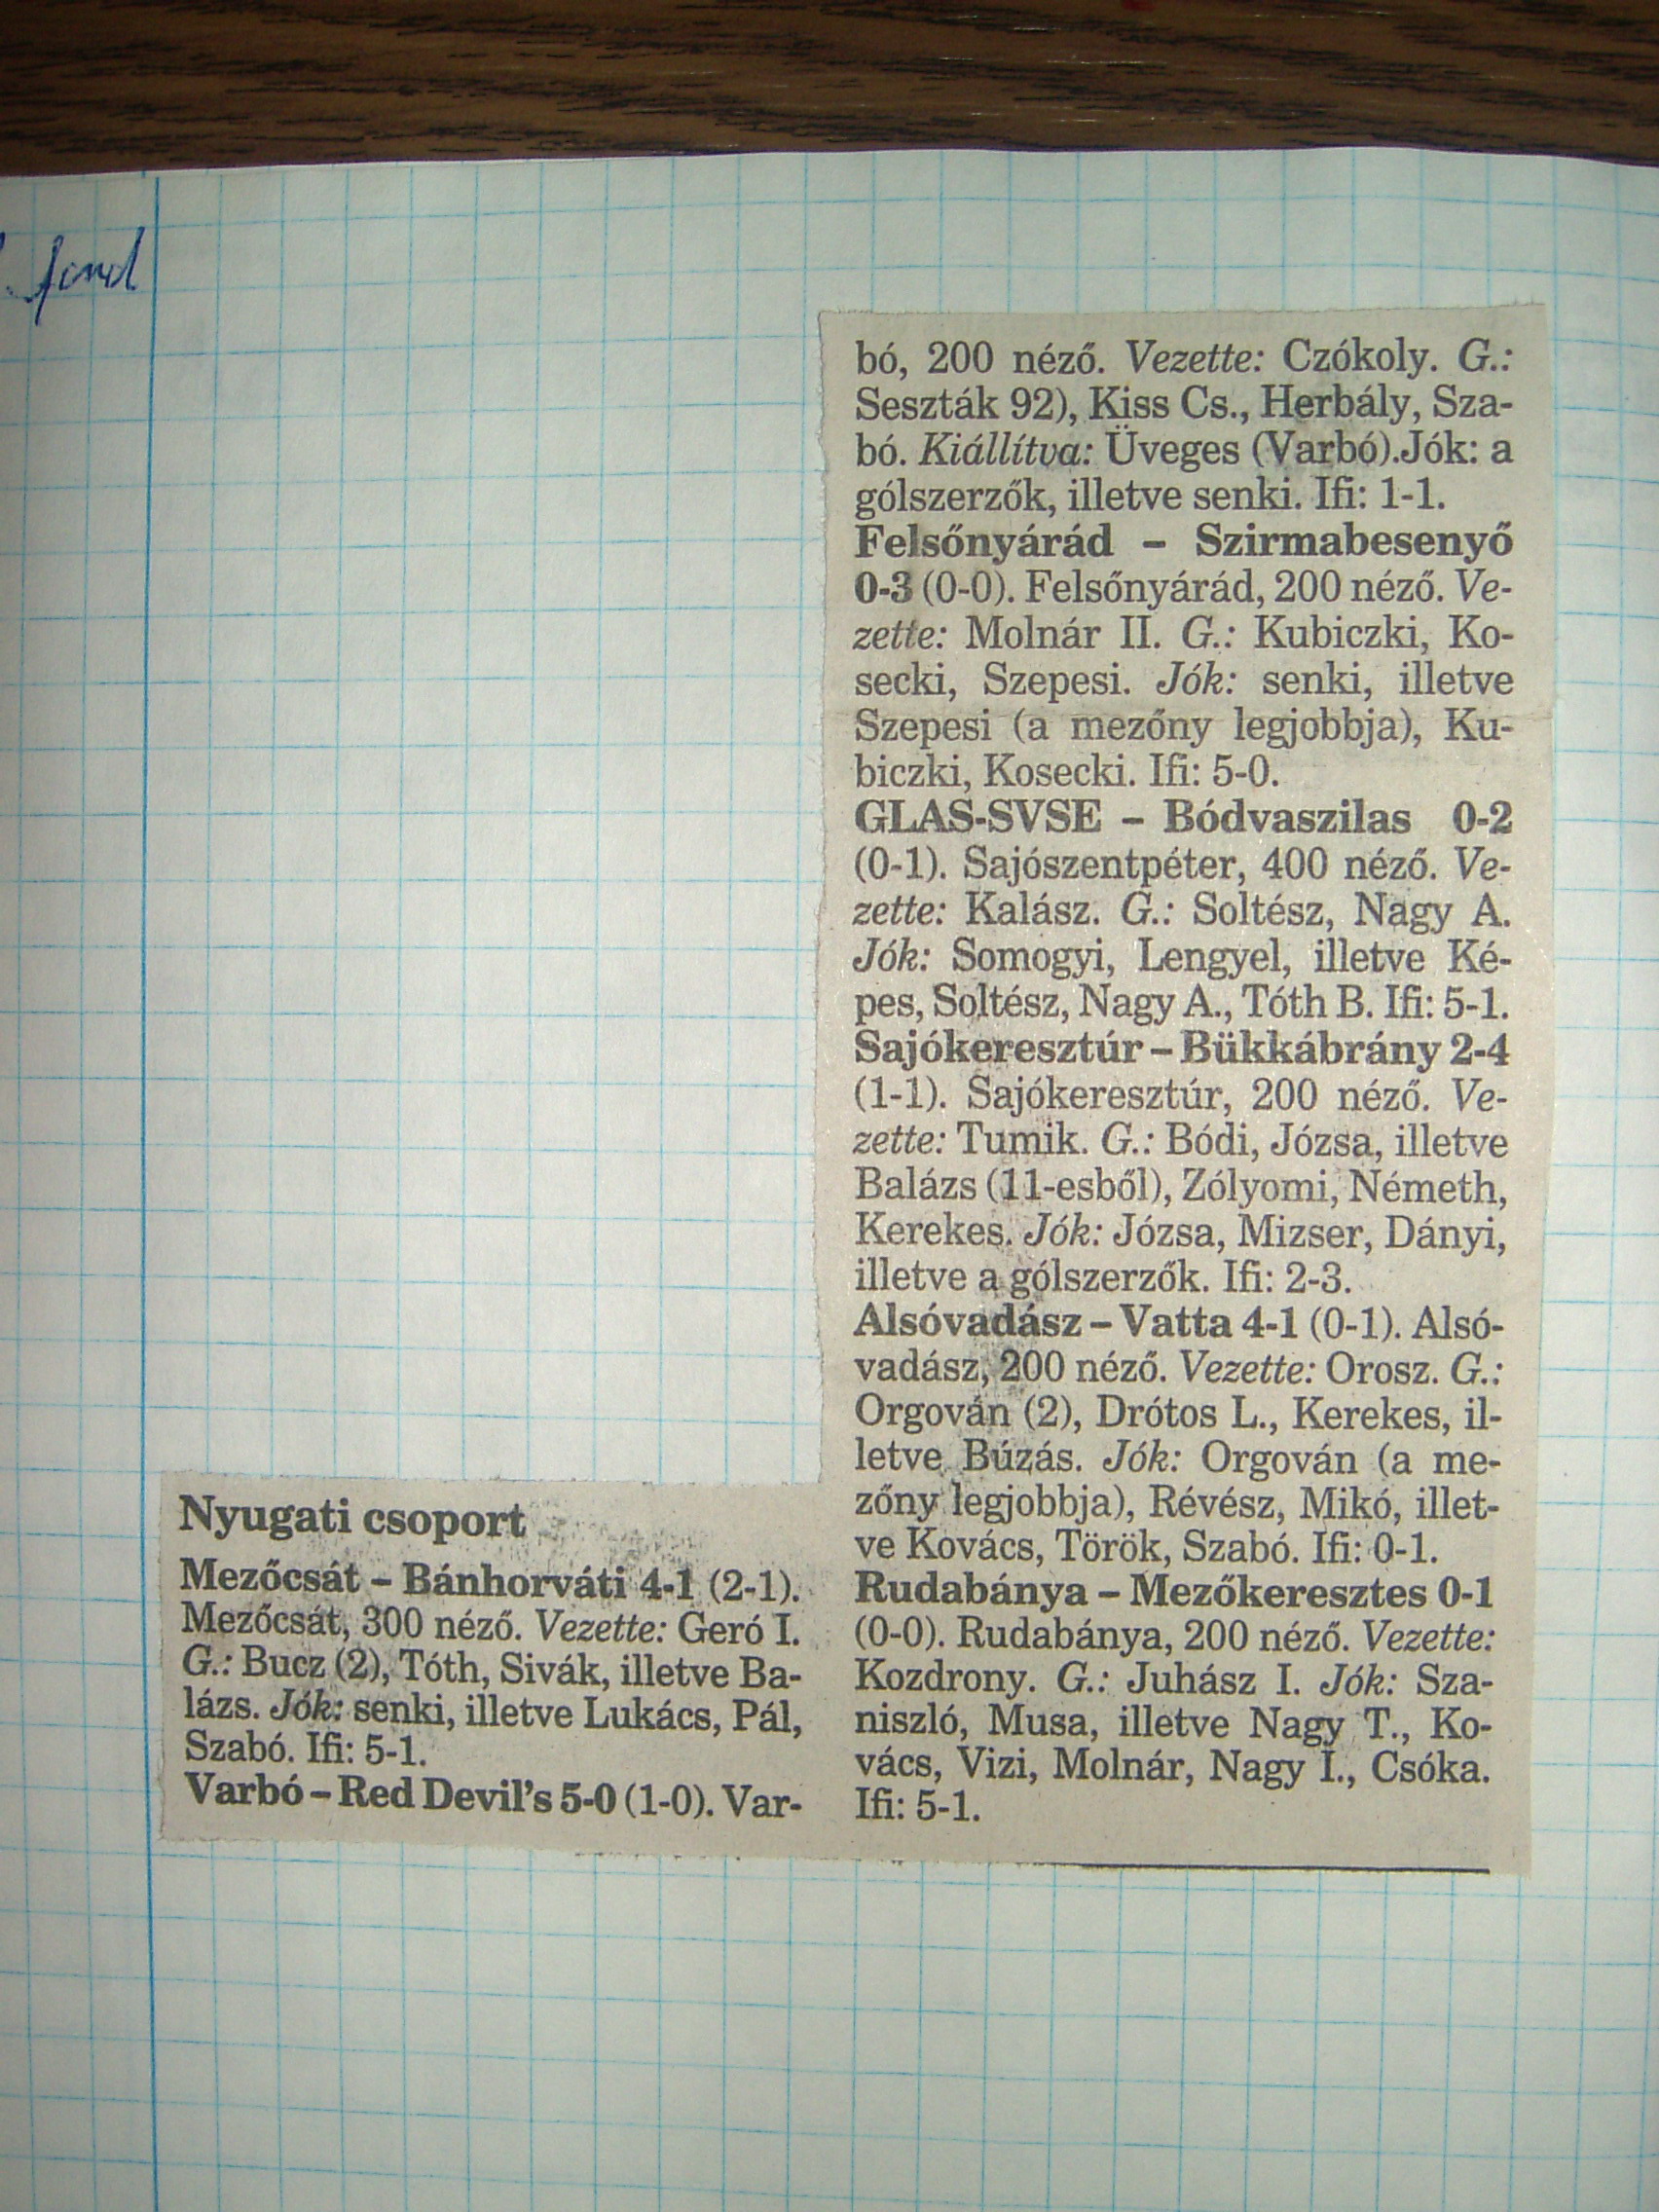 ford
Nyugati csoport
Mezőcsát – Bánhorváti 4-1 (2-1).
Mezőcsát, 300 néző. Vezette: Geró I.
G.: Bucz (2), Tóth, Sivák, illetve Ba-
lázs. Jók: senki, illetve Lukács, Pál,
Szabó. Ifi: 5-1.
Varbó – Red Devil's 5-0 (1-0). Var-
bó, 200 néző. Vezette: Czókoly. G.:
Seszták 92), Kiss Cs., Herbály, Sza-
bó. Kiállítva: Üveges (Varbó).Jók: a
gólszerzők, illetve senki. Ifi: 1-1.
Felsőnyárád – Szirmabesenyő
0-3 (0-0). Felsőnyárád, 200 néző. Ve-
zette: Molnár II. G.: Kubiczki, Ko-
secki, Szepesi. Jók: senki, illetve
Szepesi (a mezőny legjobbja), Ku-
biczki, Kosecki. Ifi: 5-0.
GLAS-SVSE – Bódvaszilas 0-2
(0-1). Sajószentpéter, 400 néző. Ve-
zette: Kalász. G.: Soltész, Nagy A.
Jók: Somogyi, Lengyel, illetve Ké-
pes, Soltész, Nagy A., Tóth B. Ifi: 5-1.
Sajókeresztúr – Bükkábrány 2-4
(1-1). Sajókeresztúr, 200 néző. Ve-
zette: Tumik. G.: Bódi, Józsa, illetve
Balázs (11-esből), Zólyomi, Németh,
Kerekes. Jók: Józsa, Mizser, Dányi,
illetve a gólszerzők. Ifi: 2-3.
Alsóvadász – Vatta 4-1 (0-1). Alsó-
vadász, 200 néző. Vezette: Orosz. G.:
Orgován (2), Drótos L., Kerekes, il-
letve Búzás. Jók: Orgován (a me-
zőny legjobbja), Révész, Mikó, illet-
ve Kovács, Török, Szabó. Ifi: 0-1.
Rudabánya – Mezőkeresztes 0-1
(0-0). Rudabánya, 200 néző. Vezette:
Kozdrony. G.: Juhász I. Jók: Sza-
niszló, Musa, illetve Nagy T., Ko-
vács, Vizi, Molnár, Nagy I., Csóka.
Ifi: 5-1.